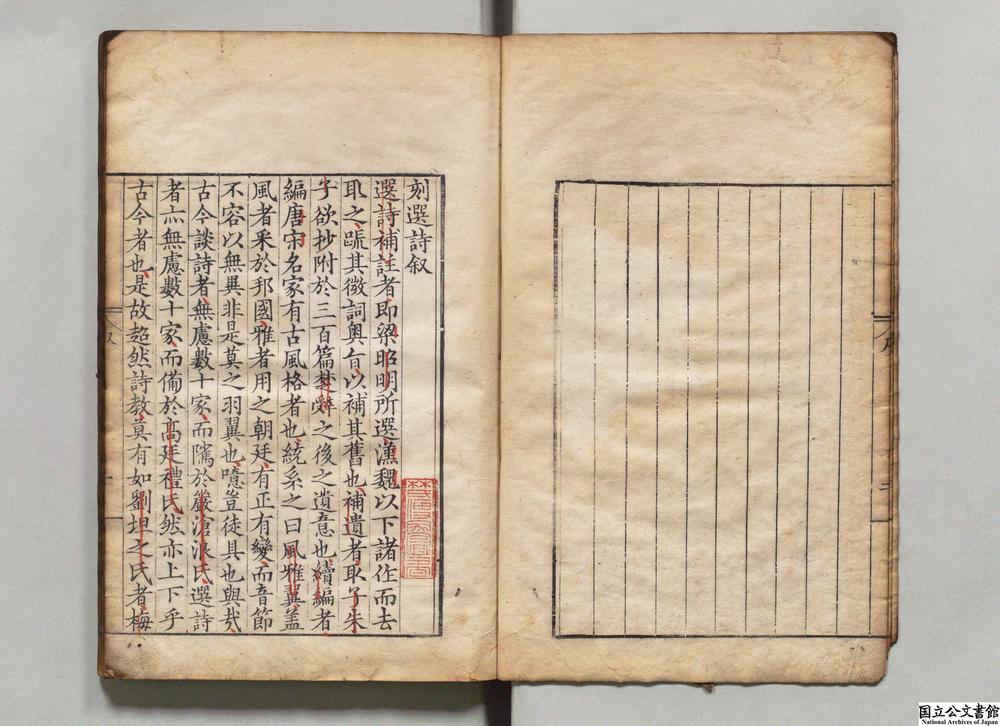 刻選詩叙
選詩補註者即梁昭明所選漢魏以下諸作而去
取之䟽其微詞奥旨以補其舊也補遺者取子朱
子欲抄附於三百篇楚辭之後之遺意也續編者
編唐宋名家有古風格者也統系之曰風雅翼盖
風者采於邦國雅者用之朝廷有正有變而音節
不容以無異非是莫之羽翼也噫豈徒具也與㢤
古今談詩者無慮數十家而隲於嚴滄浪氏選詩
者亦無慮數十家而備於高廷禮氏然亦上下乎
古今者也是故超然詩教莫有如劉坦之氏者梅
国立公文書館
National Archives of Japan